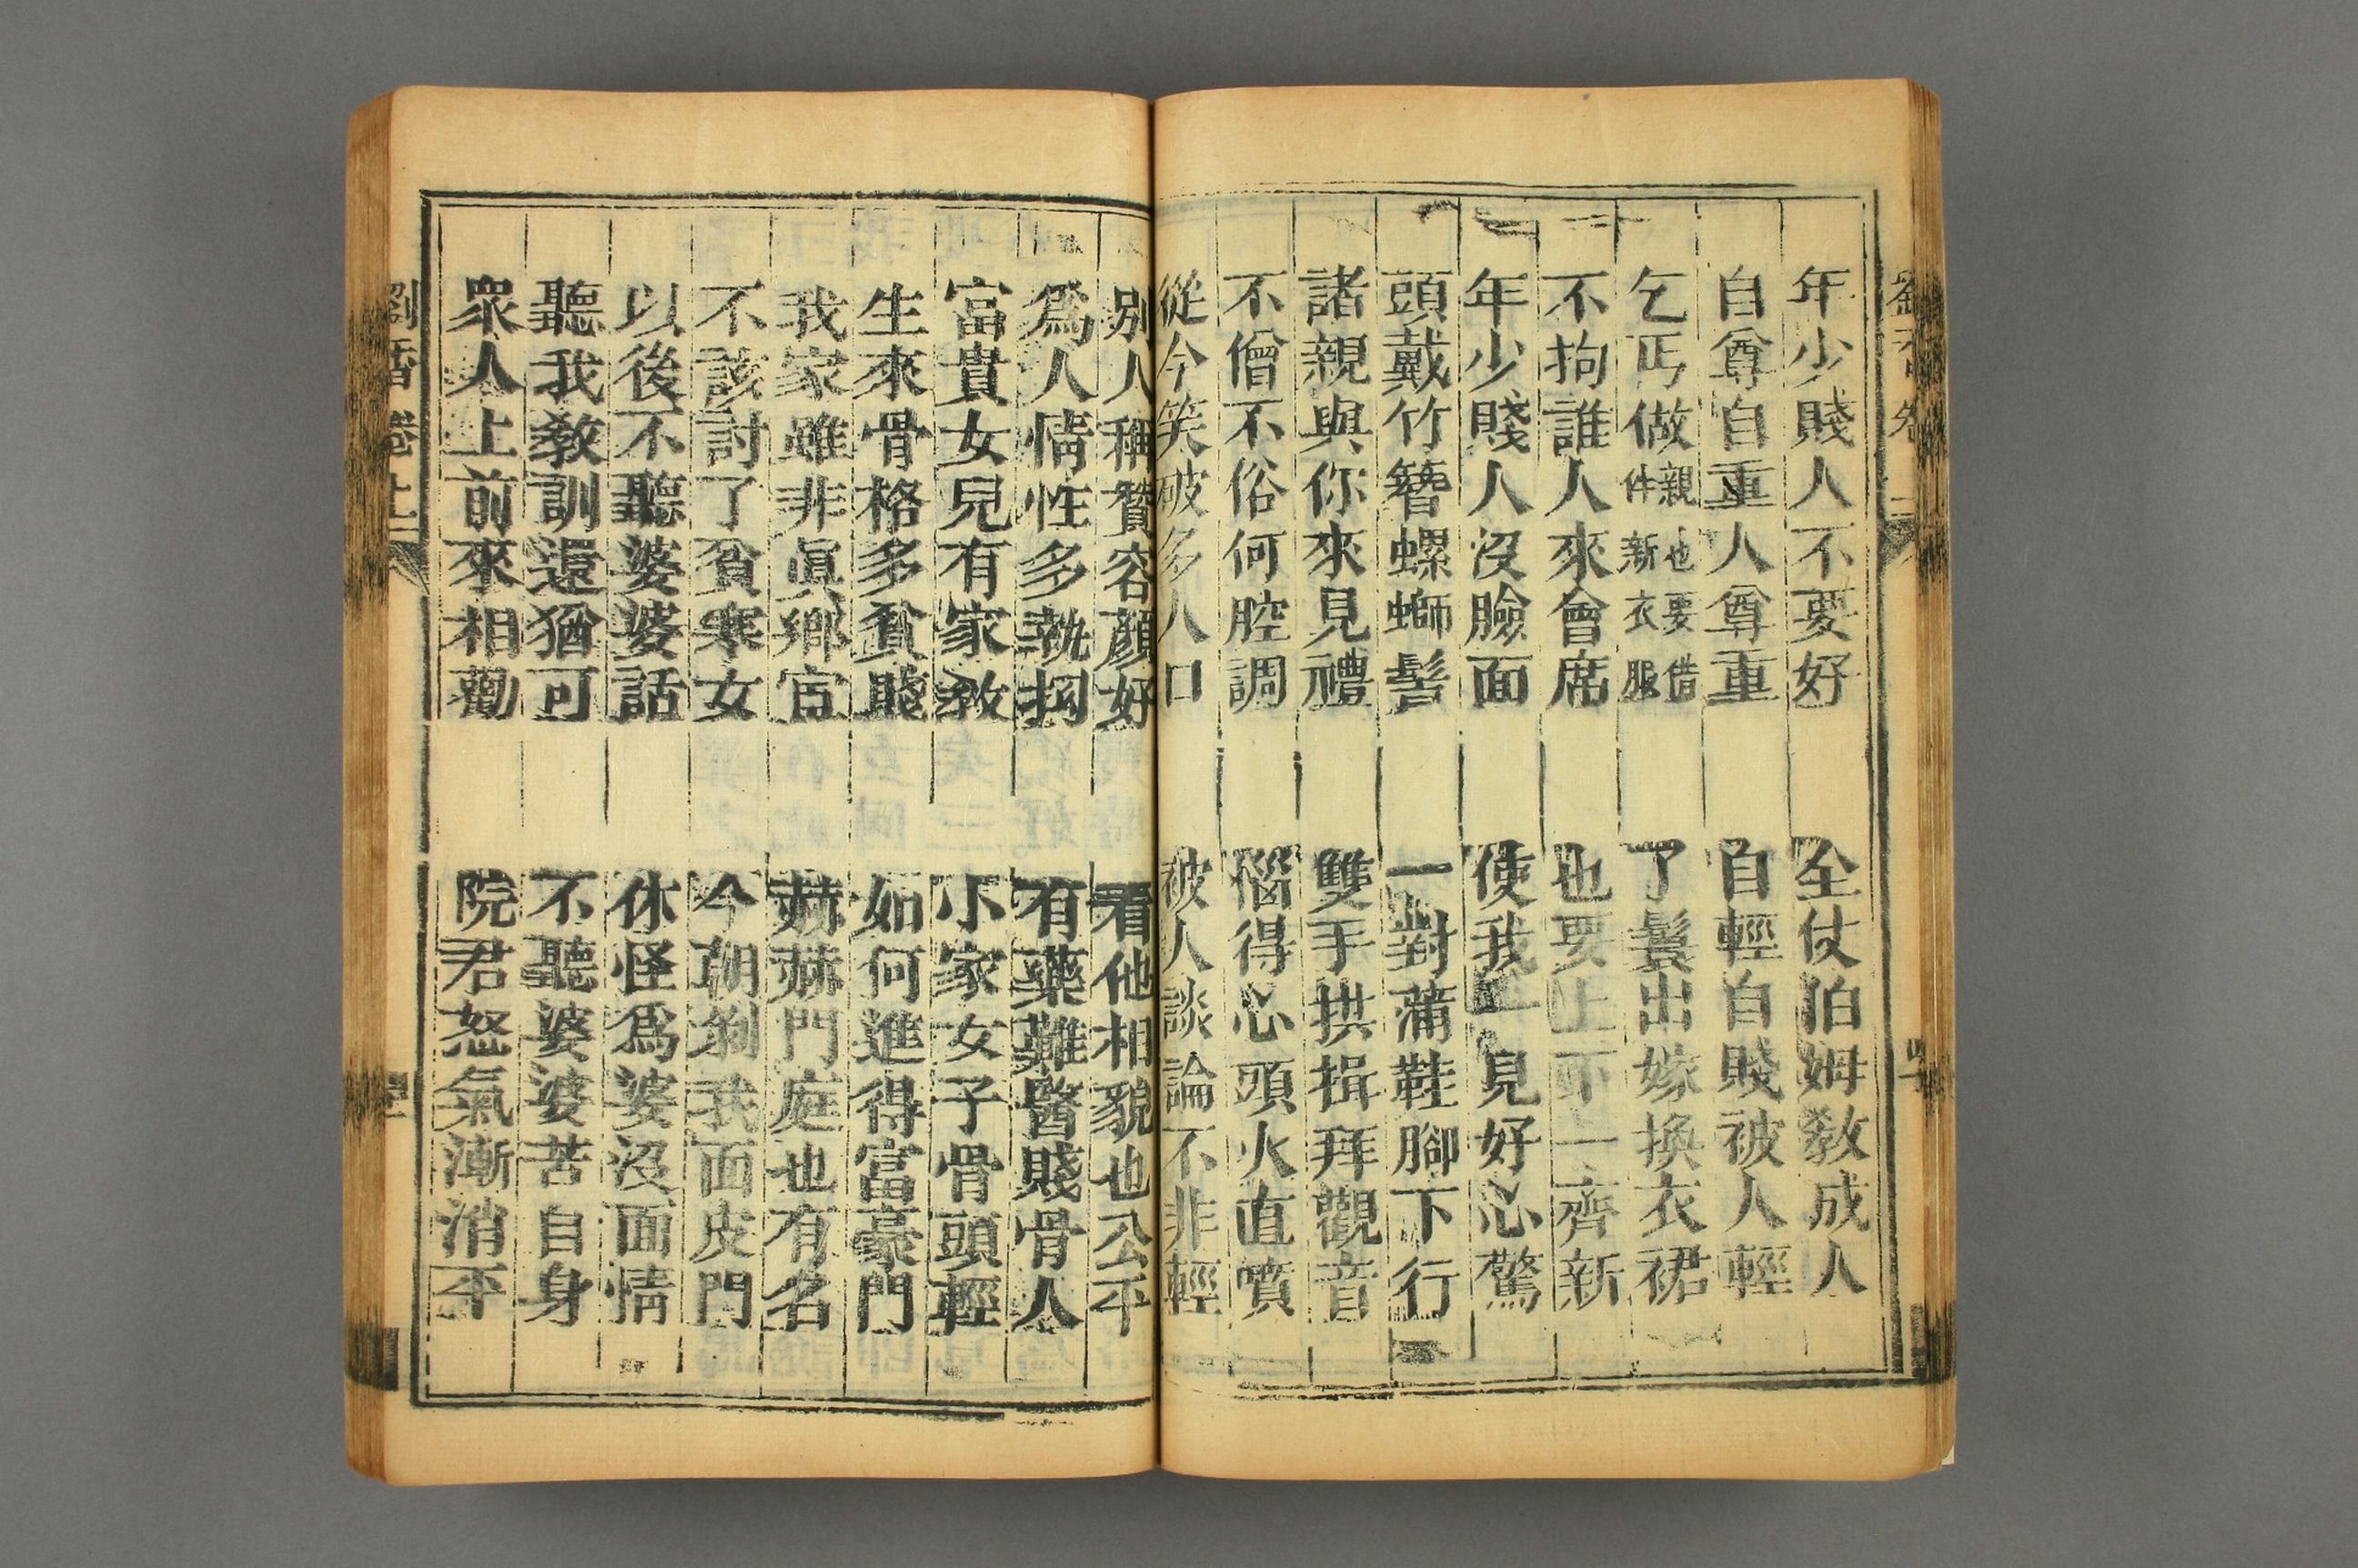 年少賤人不要好　全仗伯姆教成人
自尊自重人尊重　自輕自賤被人輕
乞丐做親也要借件新衣服　了鬟出嫁換衣裙
不拘誰人來會席　也要上下一齊新
年少賤人沒臉面　使我一見好心驚
頭戴竹簪螺螄髻　一對蒲鞋腳下行
諸親與你來見禮　雙手拱揖拜觀音
不僧不俗何腔調　惱得心頭火直噴
從今笑破多人口　被人談論不非輕
別人稱贊容顏好　看他相貌也公平
爲人情性多執拗　有藥難醫賤骨人
富貴女兒有家教　小家女子骨頭輕
生來骨格多貧賤　如何進得富豪門
我家雖非眞鄉宦　赫赫門庭也有名
不該討了貧寒女　今朝剝我面皮門
以後不聽婆婆話　休怪爲婆沒面情
聽我教訓還猶可　不聽婆婆苦自身
衆人上前來相勸　院君怒氣漸消平
劉香卷上